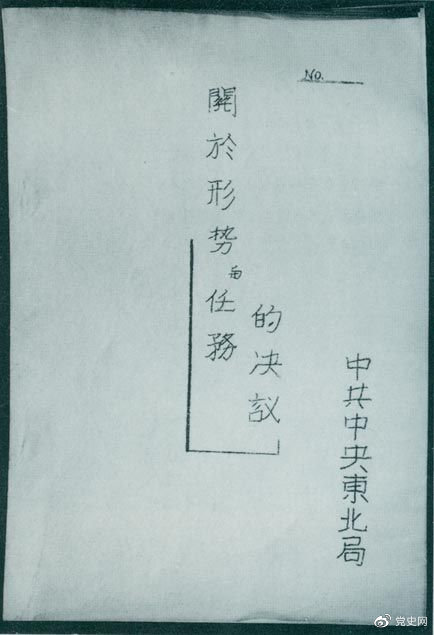 No.
中共中央東北局
關於形势与任務
的决議
党史网